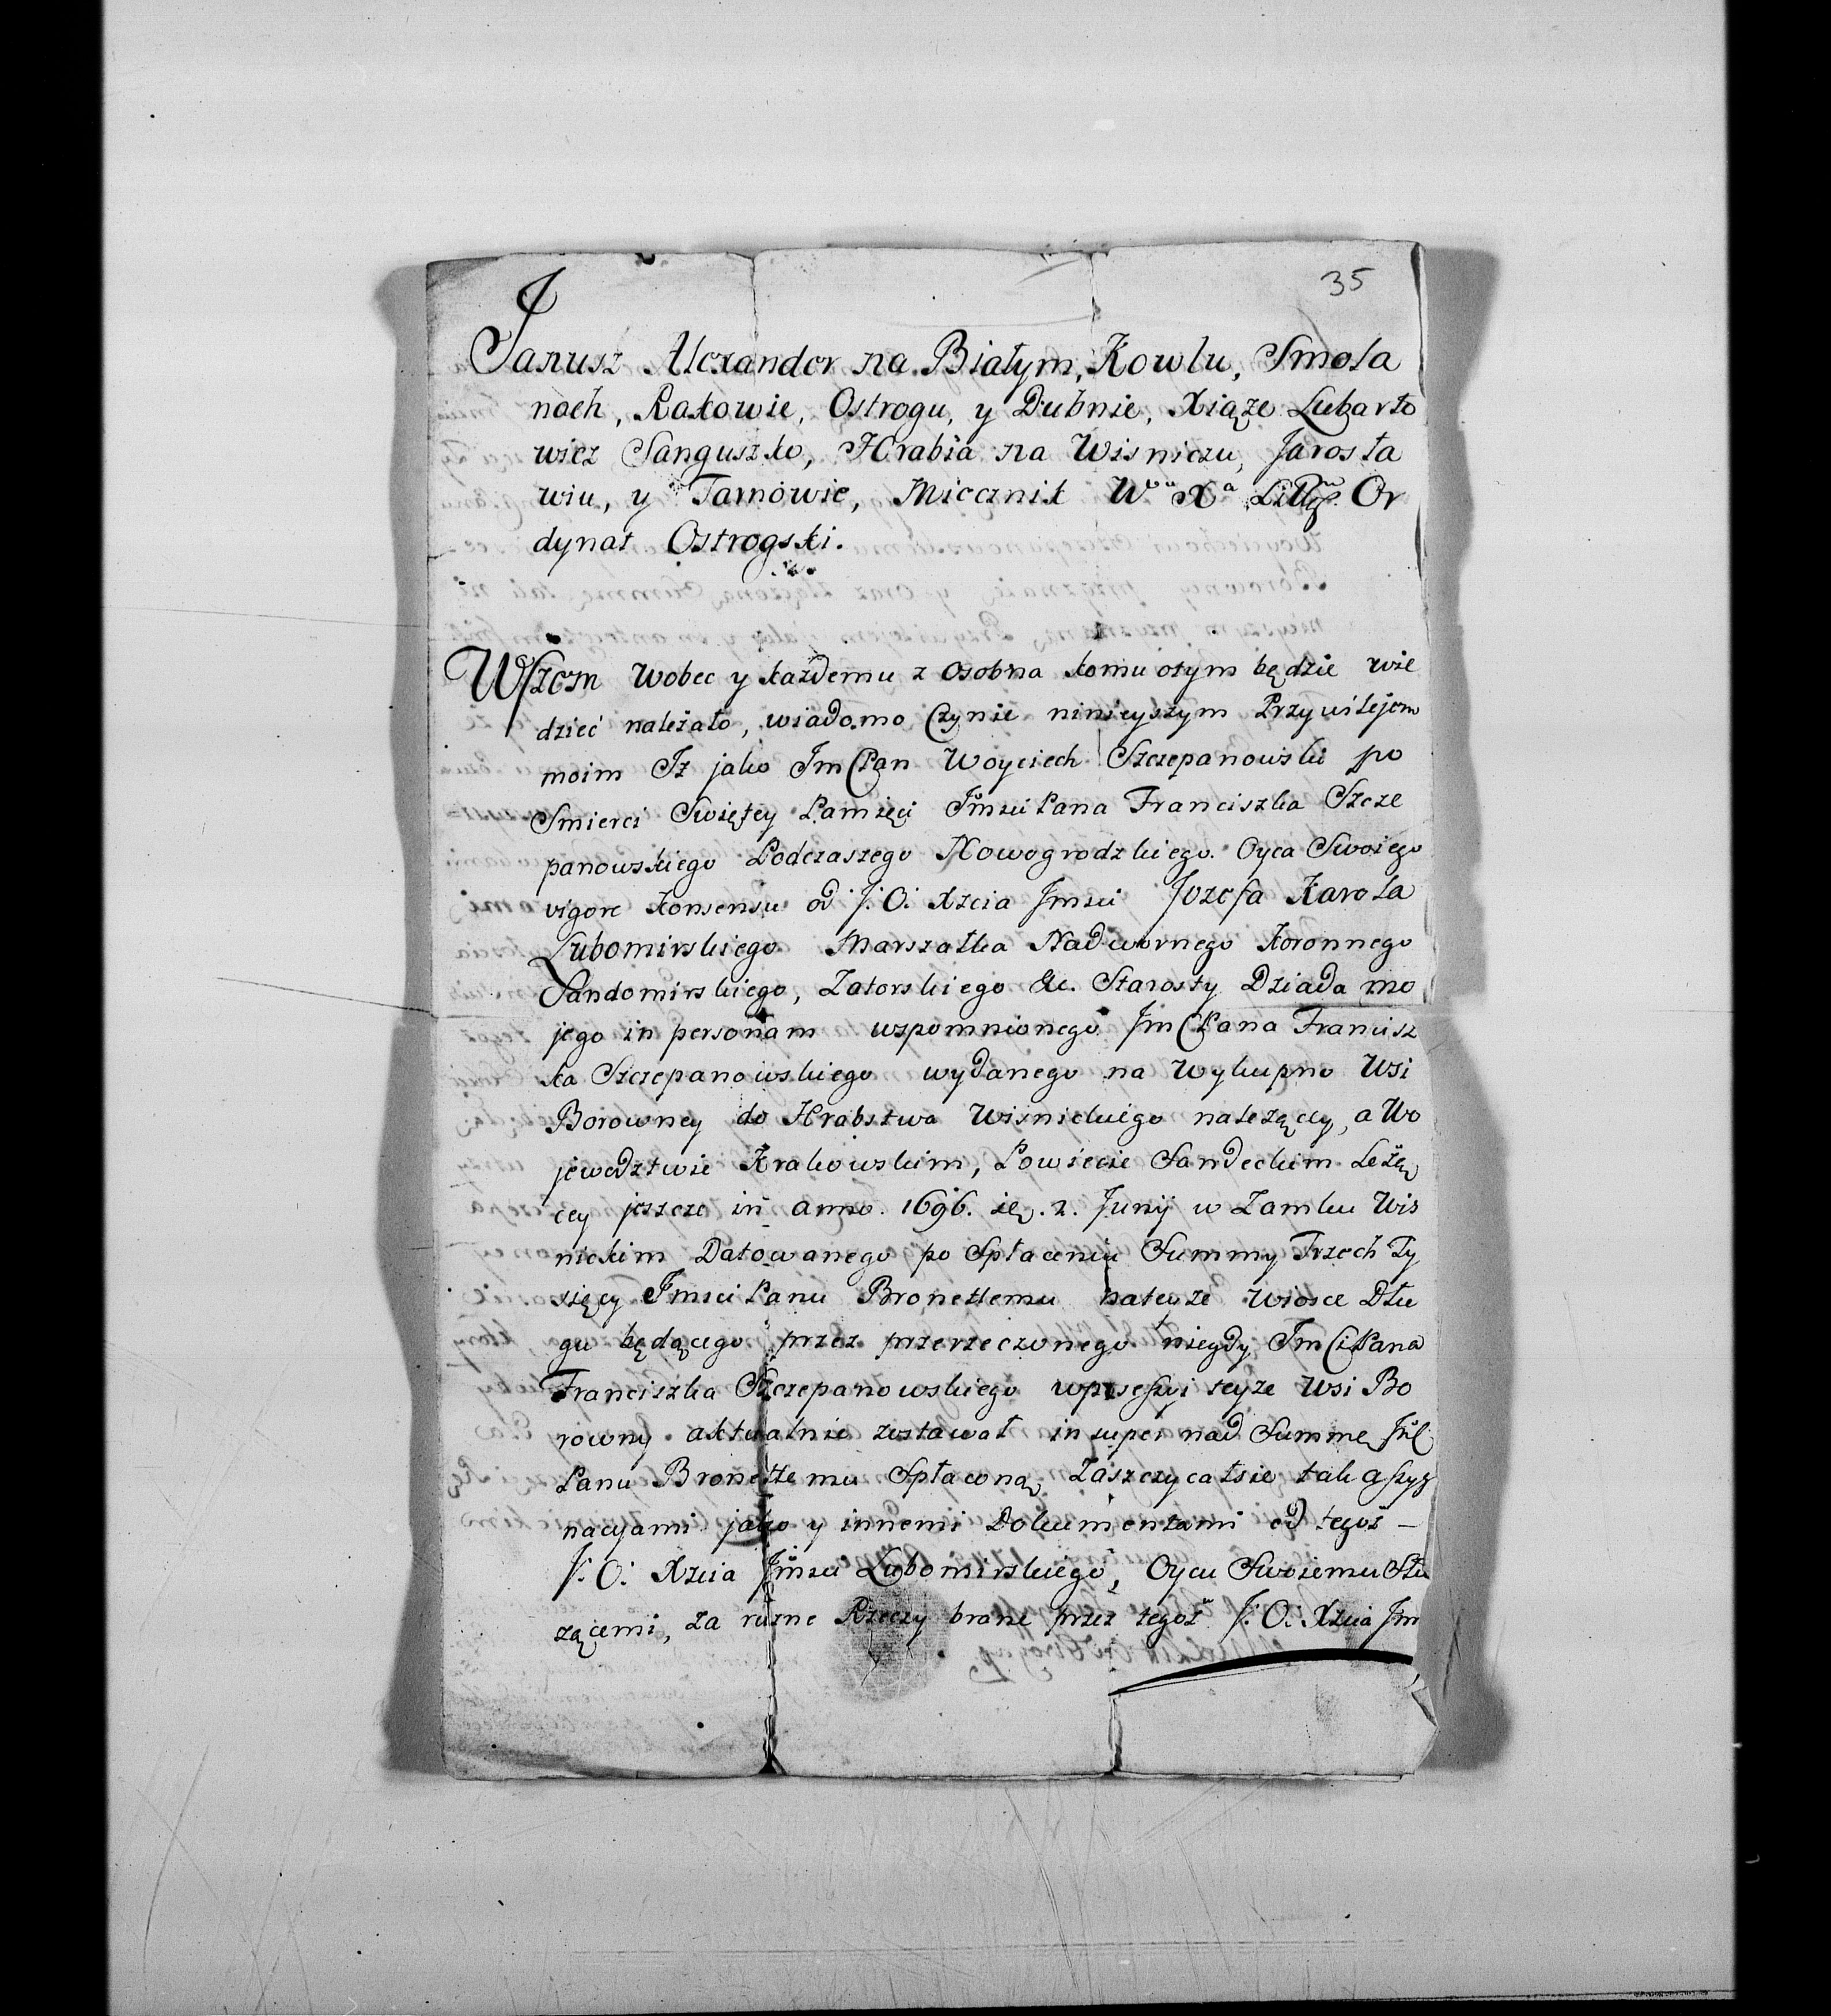 35
Janusz Alexander na Białym, Kowlu, Smola
nach, Rakowie, Ostrogu, y Dubnie, Xiąze Lubarto
wicz Sanguszko, Hrabia na Wisniczu, Jarosła
wiu, y Tarnowie, Miecznik Wo Xa Or
dynat Ostrogski.
Wszem Wobec y każdemu z osobna komu otym będzie wie
dzieć należało, wiadomo Czynie ninieyszym Przywilejem
moim Iz jako Jm Pan Woyciech Szczepanowski po
Smierci Swiętey Pamięci Jmsci Pana Franciszka Szcze
panowskiego Podczaszego Nowogrodzkiego. Oyca Swoiego
vigore konsensu od J. O. Xzcia Jmsci Jozefa Karola
Lubomirskiego Marszałka Nadwornego Koronnego
Sandomirskiego, Zatorskiego &c. Starosty Dziada mo
jego in personam wspomnionego Jm Pana Francisz
ka Szczepanowskiego wydanego na Wykupno Wsi
Borowney do Hrabstwa Wisnickiego należącey, a Wo
jewodztwie Krakowskim, Powiecie Sandeckim Leżą
cey jeszcze in anno. 1696. 2. Junij w Zamku Wis
nickim Datowanego po Spłaceniu Summy Trzech Ty
sięcy Jmsci Panu Bronettemu nateyze Wiosce Dłu
gu będącego przez przerzeczonego niegdy Jm Pana
Franciszka Szczepanowskiego wpossessyi teyze Wsi Bo
rowny aktualnie zostawał in super nad Summę
Panu Bronettemu Spłaconą Zaszczycałsie tak assyg
nacyami jako y innemi Dokumentami od tegoż –
J. O. Xzcia Jmsci Lubomirskiego, Oycu Swoiemu Słu
zącemi, za rozne Rzeczy brane przez tegoż J. O. Xzcia Jm